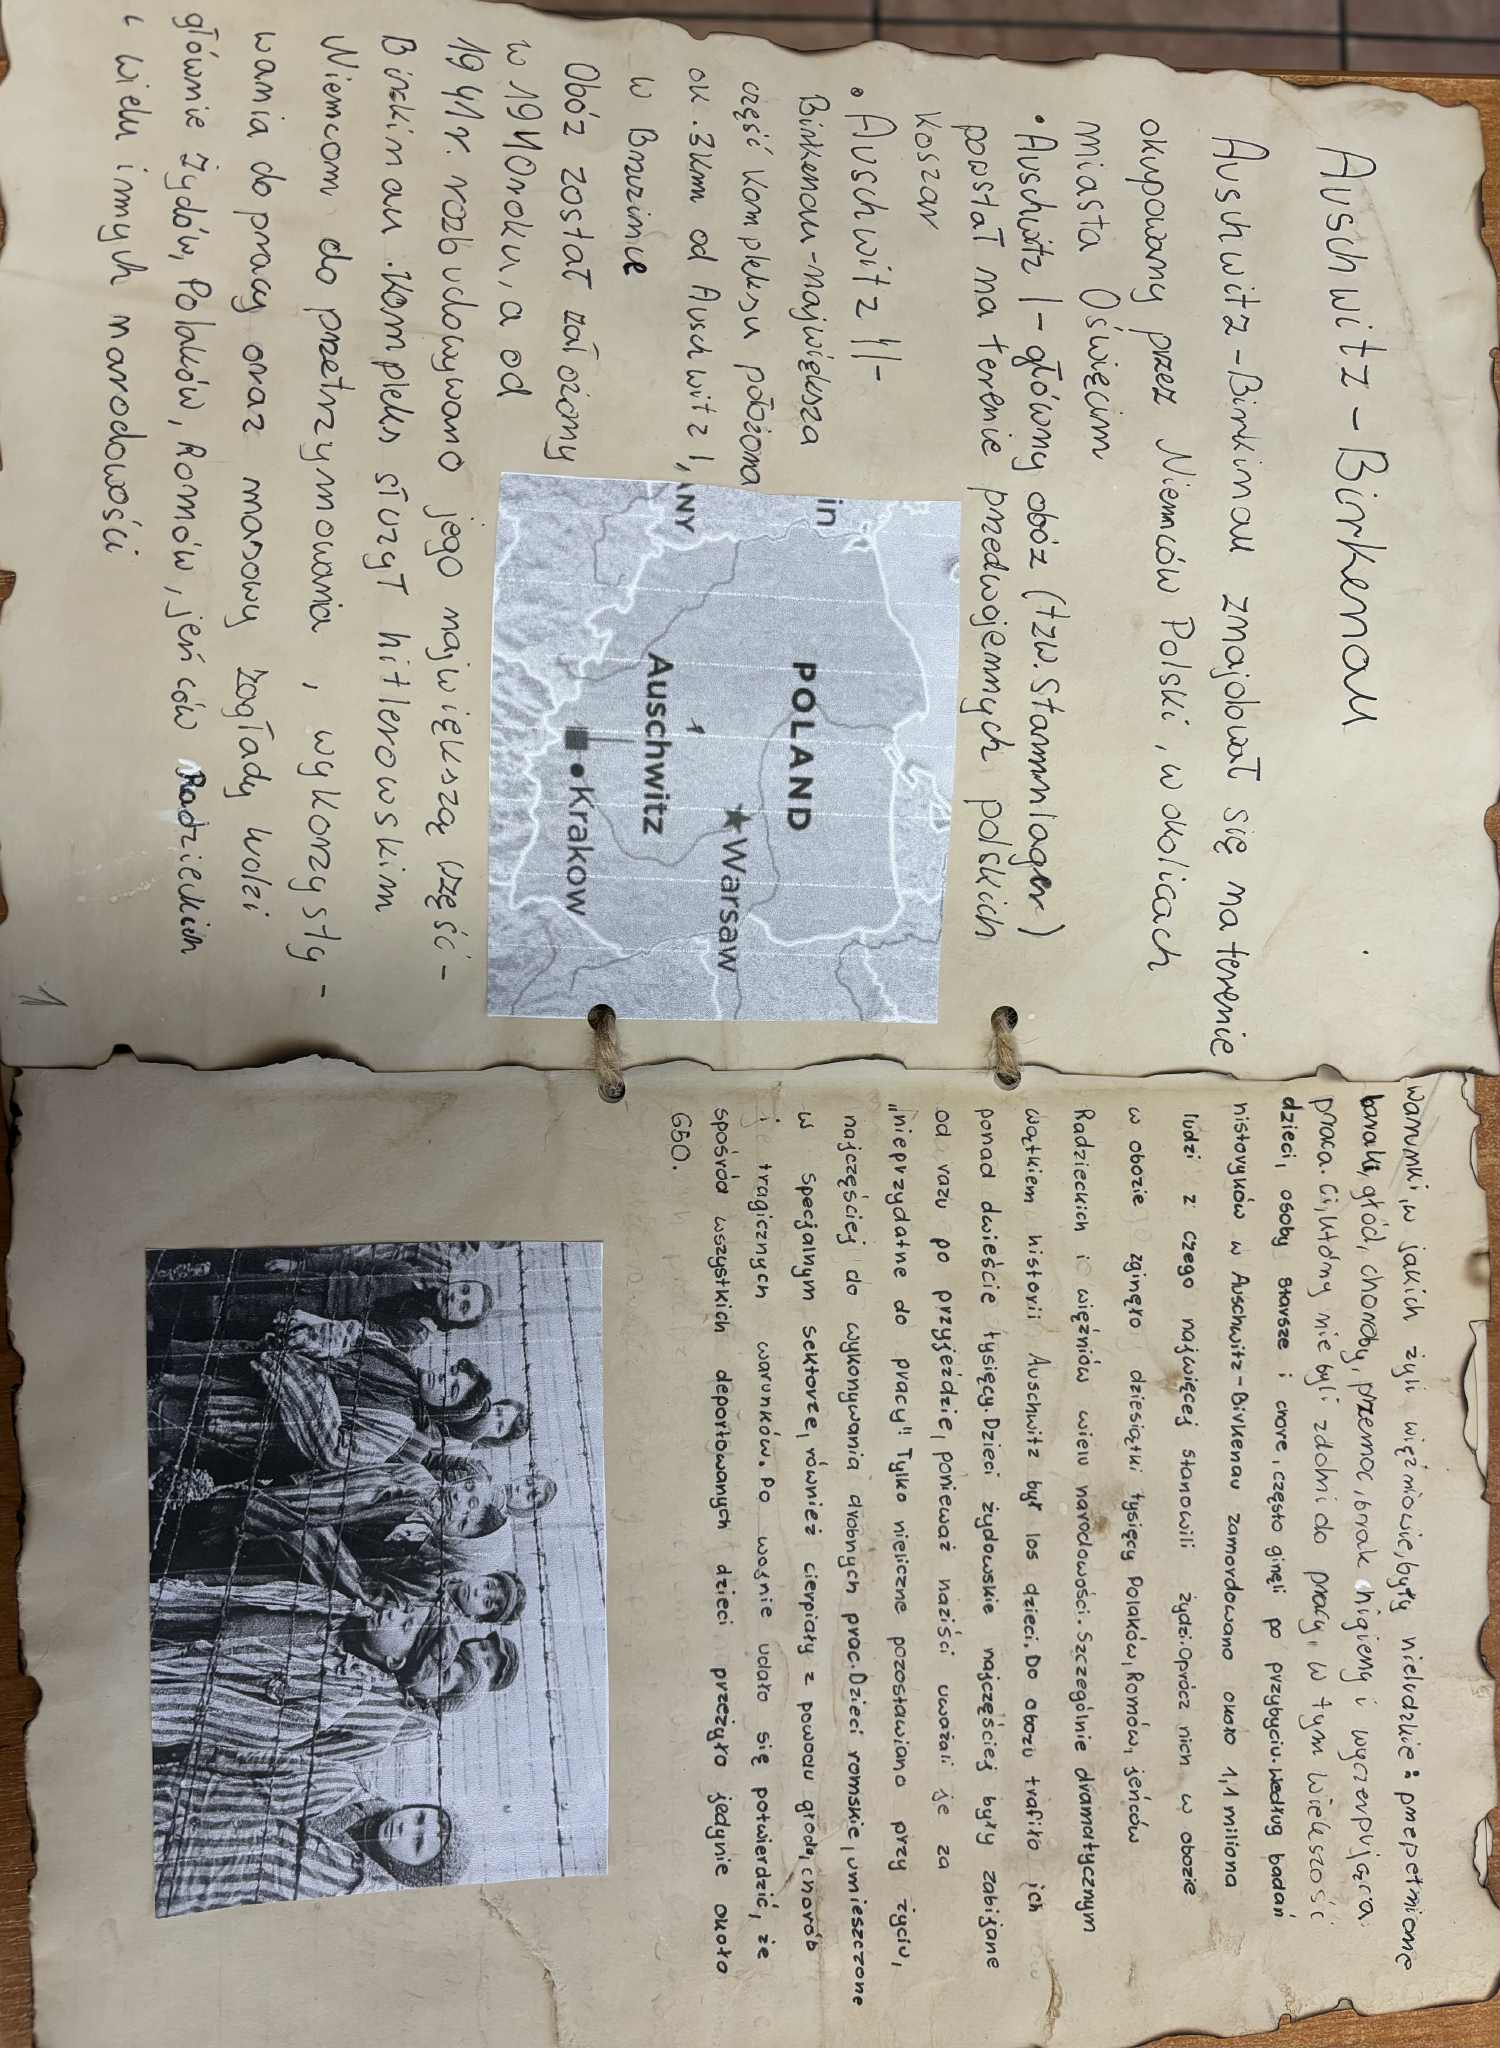 Auschwitz - Birkenau
Auschwitz-Birkinau znajdował się na terenie
okupowany przez Niemców Polski, w okolicach
miasta Oświęcim
• Auschwitz I - główny obóz (tzw. Stammlager)
powstał na terenie przedwojennych polskich
koszar
• Auschwitz II -
Birkenau - największa
część kompleksu położona
ok. 3km od Auschwitz I,
w Brzezince
Obóz został założony
w 1940roku, a od
1941r. rozbudowywano jego największą część -
Birkinau. Kompleks służył hitlerowskim
Niemcom do przetrzymowania, wykorzysty-
wania do pracy oraz masowy zagłady ludzi
głównie Żydów, Polaków, Romów, jeńców Radzieckich
i wielu innych narodowości
1
in
ANY
POLAND
Warsaw
1
Auschwitz
Krakow
warunki, w jakich żyli więźniowie, były nieludzkie: przepełnione
baraki, głód, choroby, przemoc, brak higieny i wyczerpująca
praca. Ci, którzy nie byli zdolni do pracy, w tym większość
dzieci, osoby starsze i chore, często ginęli po przybyciu. Według badań
historyków w Auschwitz-Birkenau zamordowano około 1,1 miliona
ludzi z czego najwięcej stanowili żydzi. Oprócz nich w obozie
w obozie zginęło dziesiątki tysięcy Polaków, Romów, jeńców
Radzieckich i więźniów wielu narodowości. Szczególnie dramatycznym
wątkiem historii Auschwitz był los dzieci. Do obozu trafiło ich
ponad dwieście tysięcy. Dzieci żydowskie najczęściej były zabijane
od razu po przyjeździe, ponieważ naziści uważali je za
"nieprzydatne do pracy" Tylko nieliczne pozostawiano przy życiu,
najczęściej do wykonywania drobnych prac. Dzieci romskie, umieszczone
w specjalnym sektorze, również cierpiały z powodu głodu, chorób
i tragicznych warunków. Po wojnie udało się potwierdzić, że
spośród wszystkich deportowanych dzieci przeżyło jedynie około
650.